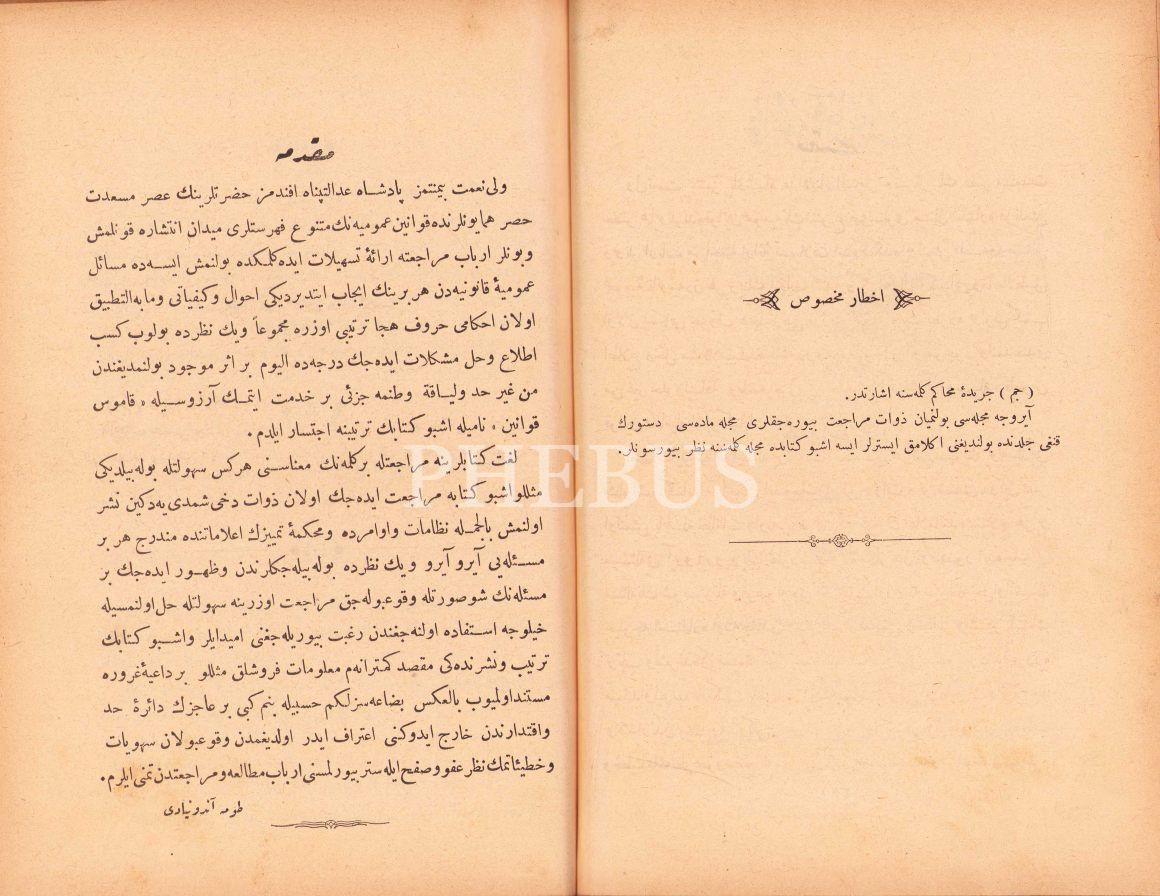 اخطار مخصوص
( جم ) جریدۀ محاکم کلمه‌سنه اشارتدر.
آیروجه مجله‌سی بولنمیان ذوات مراجعت بیوره‌جقلری مجله ماده‌سی دستورك
قنغی جلدنده بولندیغنی اکلامق ایسترلر ایسه اشبو کتابده مجله کلمه‌سنه نظر بیورسونلر.
مقدمه
ولی‌نعمت بیمنتمز پادشاه عدالتپناه افندمز حضرتلرینك عصر مسعدت
حصر همایونلرنده قوانین عمومیه‌نك متنوع فهرستلری میدان انتشاره قونلمش
وبونلر ارباب مراجعته ارائۀ تسهیلات ایده‌کلمکده بولنمش ایسه‌ده مسائل
عمومیۀ قانونیه‌دن هر برینك ایجاب ایتدیردیکی احوال وکیفیاتی ومابه‌التطبیق
اولان احکامی حروف هجا ترتیبی اوزره مجموعاً ویك نظرده بولوب کسب
اطلاع وحل مشکلات ایده‌جك درجه‌ده الیوم بر اثر موجود بولنمدیغندن
من غیر حد ولیاقة وطنمه جزئی بر خدمت ایتمك آرزوسیله « قاموس
قوانین » نامیله اشبو کتابك ترتیبنه اجتسار ایلدم.
لغت کتابلرینه مراجعتله بر کلمه‌نك معناسنی هرکس سهولتله بوله‌بیلدیکی
مثللو اشبو کتابه مراجعت ایده‌جك اولان ذوات دخی شمدی‌یه‌دکین نشر
اولنمش بالجمله نظامات واوامرده ومحکمۀ تمییزك اعلاماتنده مندرج هر بر
مسئله‌یی آیرو آیرو ویك نظرده بوله‌بیله‌جکلرندن وظهور ایده‌جك بر
مسئله‌نك شو صورتله وقوعبوله‌جق مراجعت اوزرینه سهولتله حل اولنمسیله
خیلوجه استفاده اولنه‌جغندن رغبت بیوریله‌جغنی امیدایلر واشبو کتابك
ترتیب ونشرنده‌کی مقصد کمترانه‌م معلومات فروشلق مثللو بر داعیۀ غروره
مستنداولمیوب بالعکس بضاعه‌سزلکم حسبیله بنم کبی بر عاجزك دائرۀ حد
واقتدارندن خارج ایدوکنی اعتراف ایدر اولدیغمدن وقوعبولان سهویات
وخطیئاتمك نظر عفو وصفح ایله ستر بیورلمسنی ارباب مطالعه ومراجعتدن تمنی ایلرم.
طومه آندونیادی
PHEBUS